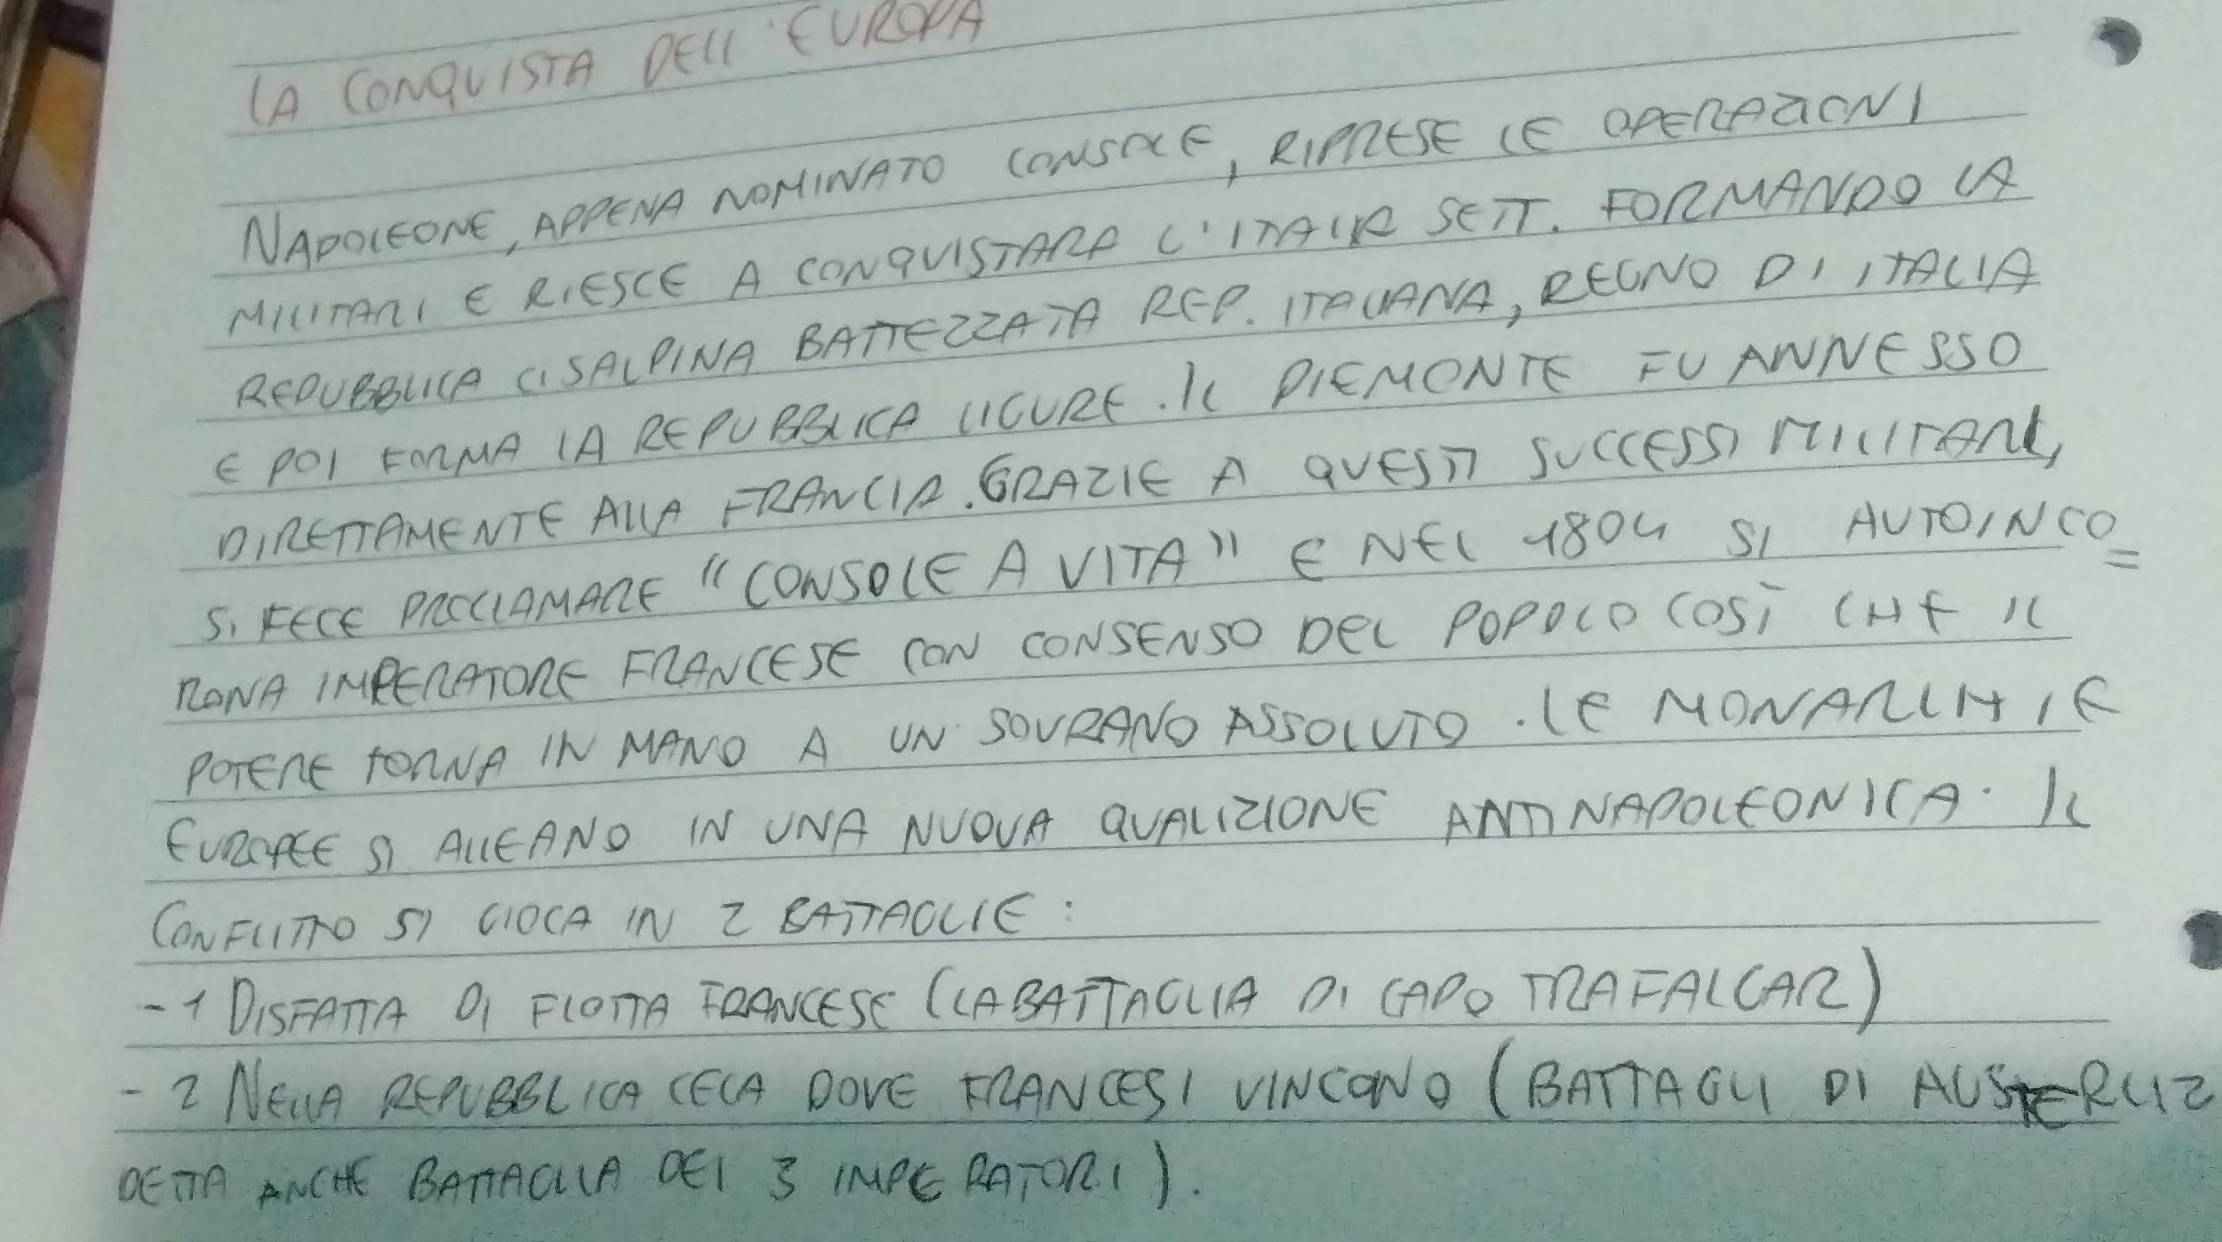 LA CONQUISTA DELL'EUROPA
NAPOLEONE, APPENA NOMINATO CONSOLE, RIPRESE LE OPERAZIONI
MILITARI E RIESCE A CONQUISTARA L'ITALIA SETT. FORMANDO LA
REPUBBLICA CISALPINA BATTEZZATA REP. ITALIANA, REGNO DI ITALIA
E POI FORMA LA REPUBBLICA LIGURE. IL PIEMONTE FU ANNESSO
DIRETTAMENTE ALLA FRANCIA. GRAZIE A QUESTI SUCCESSI MILITARI,
SI FECE PROCLAMARE "CONSOLE A VITA" E NEL 1804 SI AUTOINCO=
RONA IMPERATORE FRANCESE CON CONSENSO DEL POPOLO COSÌ CHE IL
POTERE TORNA IN MANO A UN SOVRANO ASSOLUTO. LE MONARCHIE
EUROPEE SI ALLEANO IN UNA NUOVA QUALIZIONE ANTINAPOLEONICA. IL
CONFLITTO SI GIOCA IN 2 BATTAGLIE:
-1 DISFATTA DI FLOTTA FRANCESE (LA BATTAGLIA DI CAPO TRAFALGAR)
-2 NELLA REPUBBLICA CECA DOVE FRANCESI VINCONO (BATTAGLI DI AUSTERLIZ
DETTA ANCHE BATTAGLIA DEI 3 IMPERATORI).